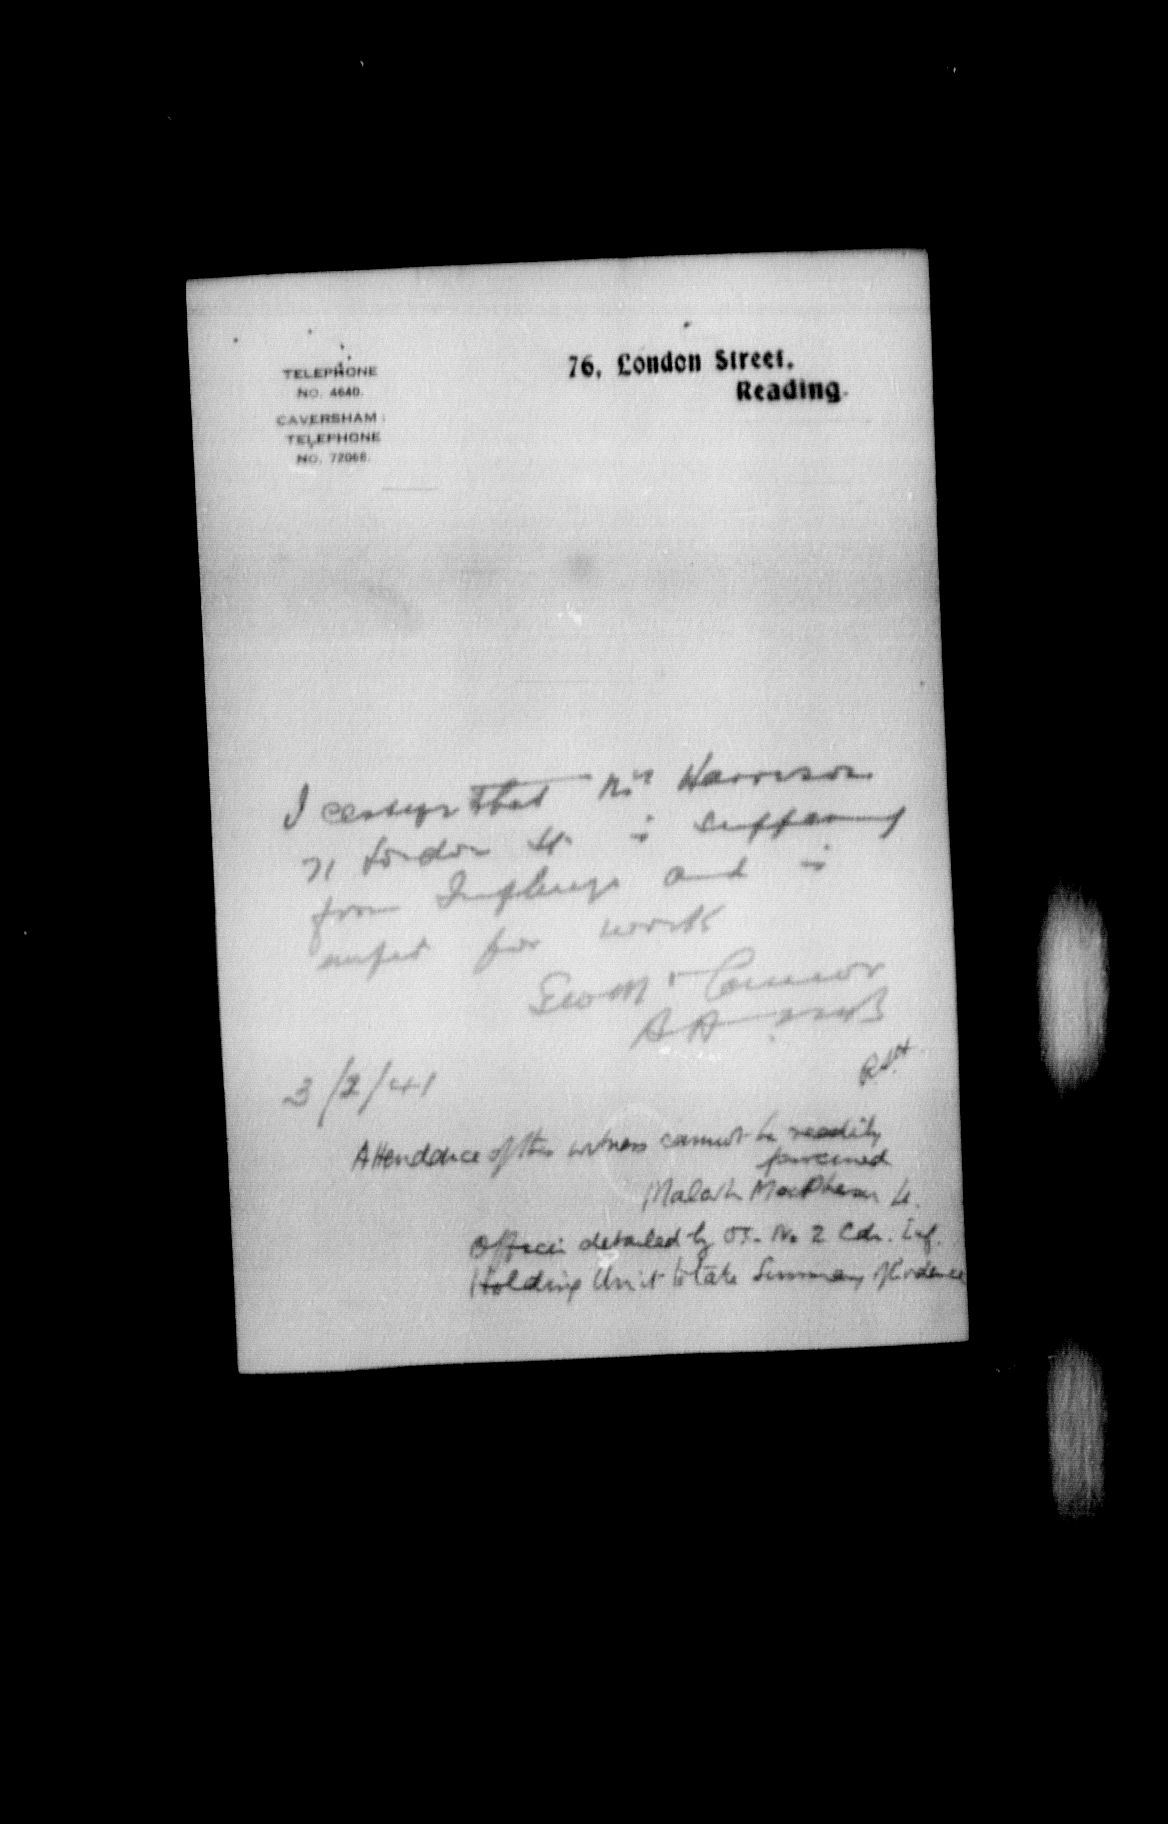 TELEPHONE
NO. 4640.
CAVERSHAM
TELEPHONE
NO. 72068.
76, London Street,
Reading.
I certify that Mrs Harrison
71 London St. is suffering
from Influenza and is
unfit for work
Geo M Connor
MB
3/2/41
Attendance of this witness cannot be readily
procured
MacPherson Lt.
Officer detailed by O.C. No 2 Cdn. Inf.
Holding Unit to take Summary of Evidence